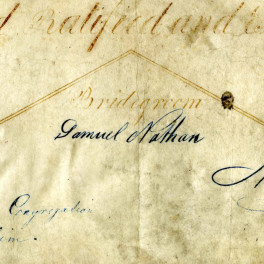 Ratified and
Bridegroom
Samuel Nathan
Congregation